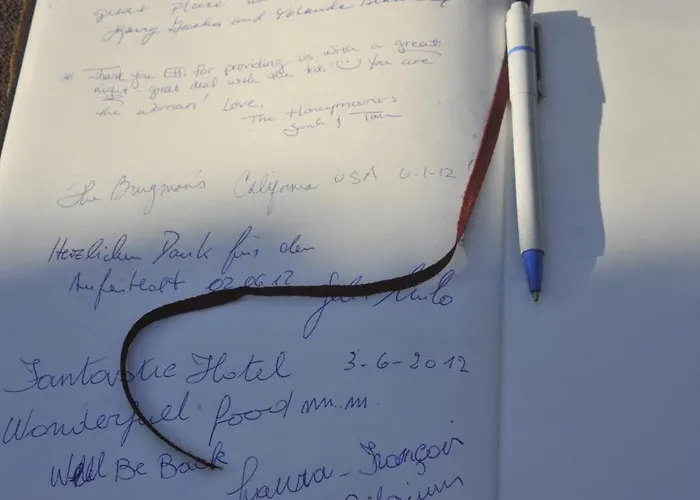 great place
and Yolande
* Thank you Effi for providing us with a great
night - great deal with the taxi! You are
the woman! Love,
The Honeymooners
Sarah & Tom
The Brugman's California USA 6-1-12
Herzlichen Dank für den
Aufenthalt 02.06.12
Fantastic Hotel 3-6-2012
Wonderfuel food m.m.
Will Be Back
François
Belgium